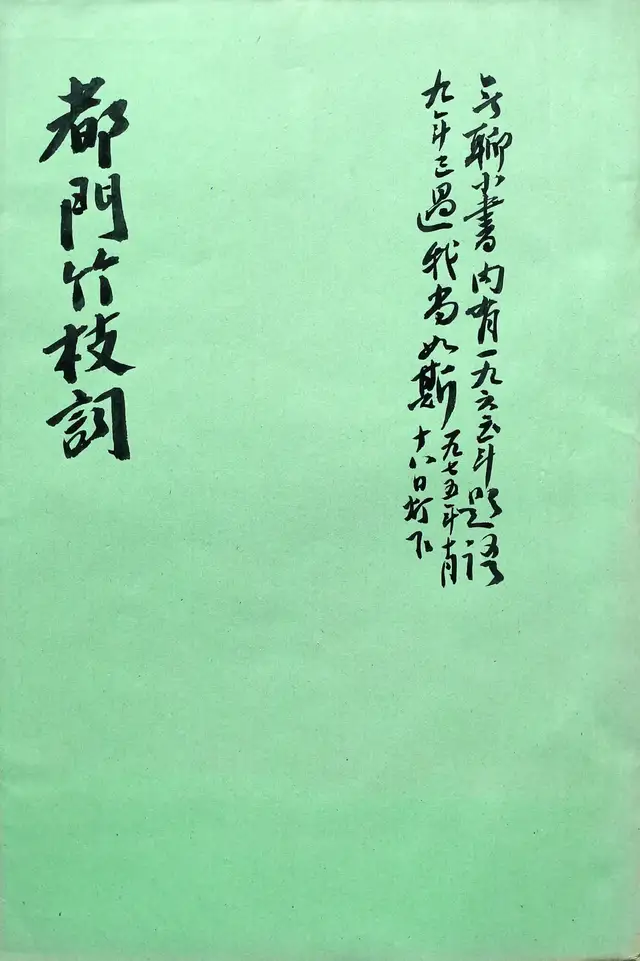 无聊小書内有一九六五年题語
九年已過我尚如斯
一九七五年十月
十八日灯下
都門竹枝詞